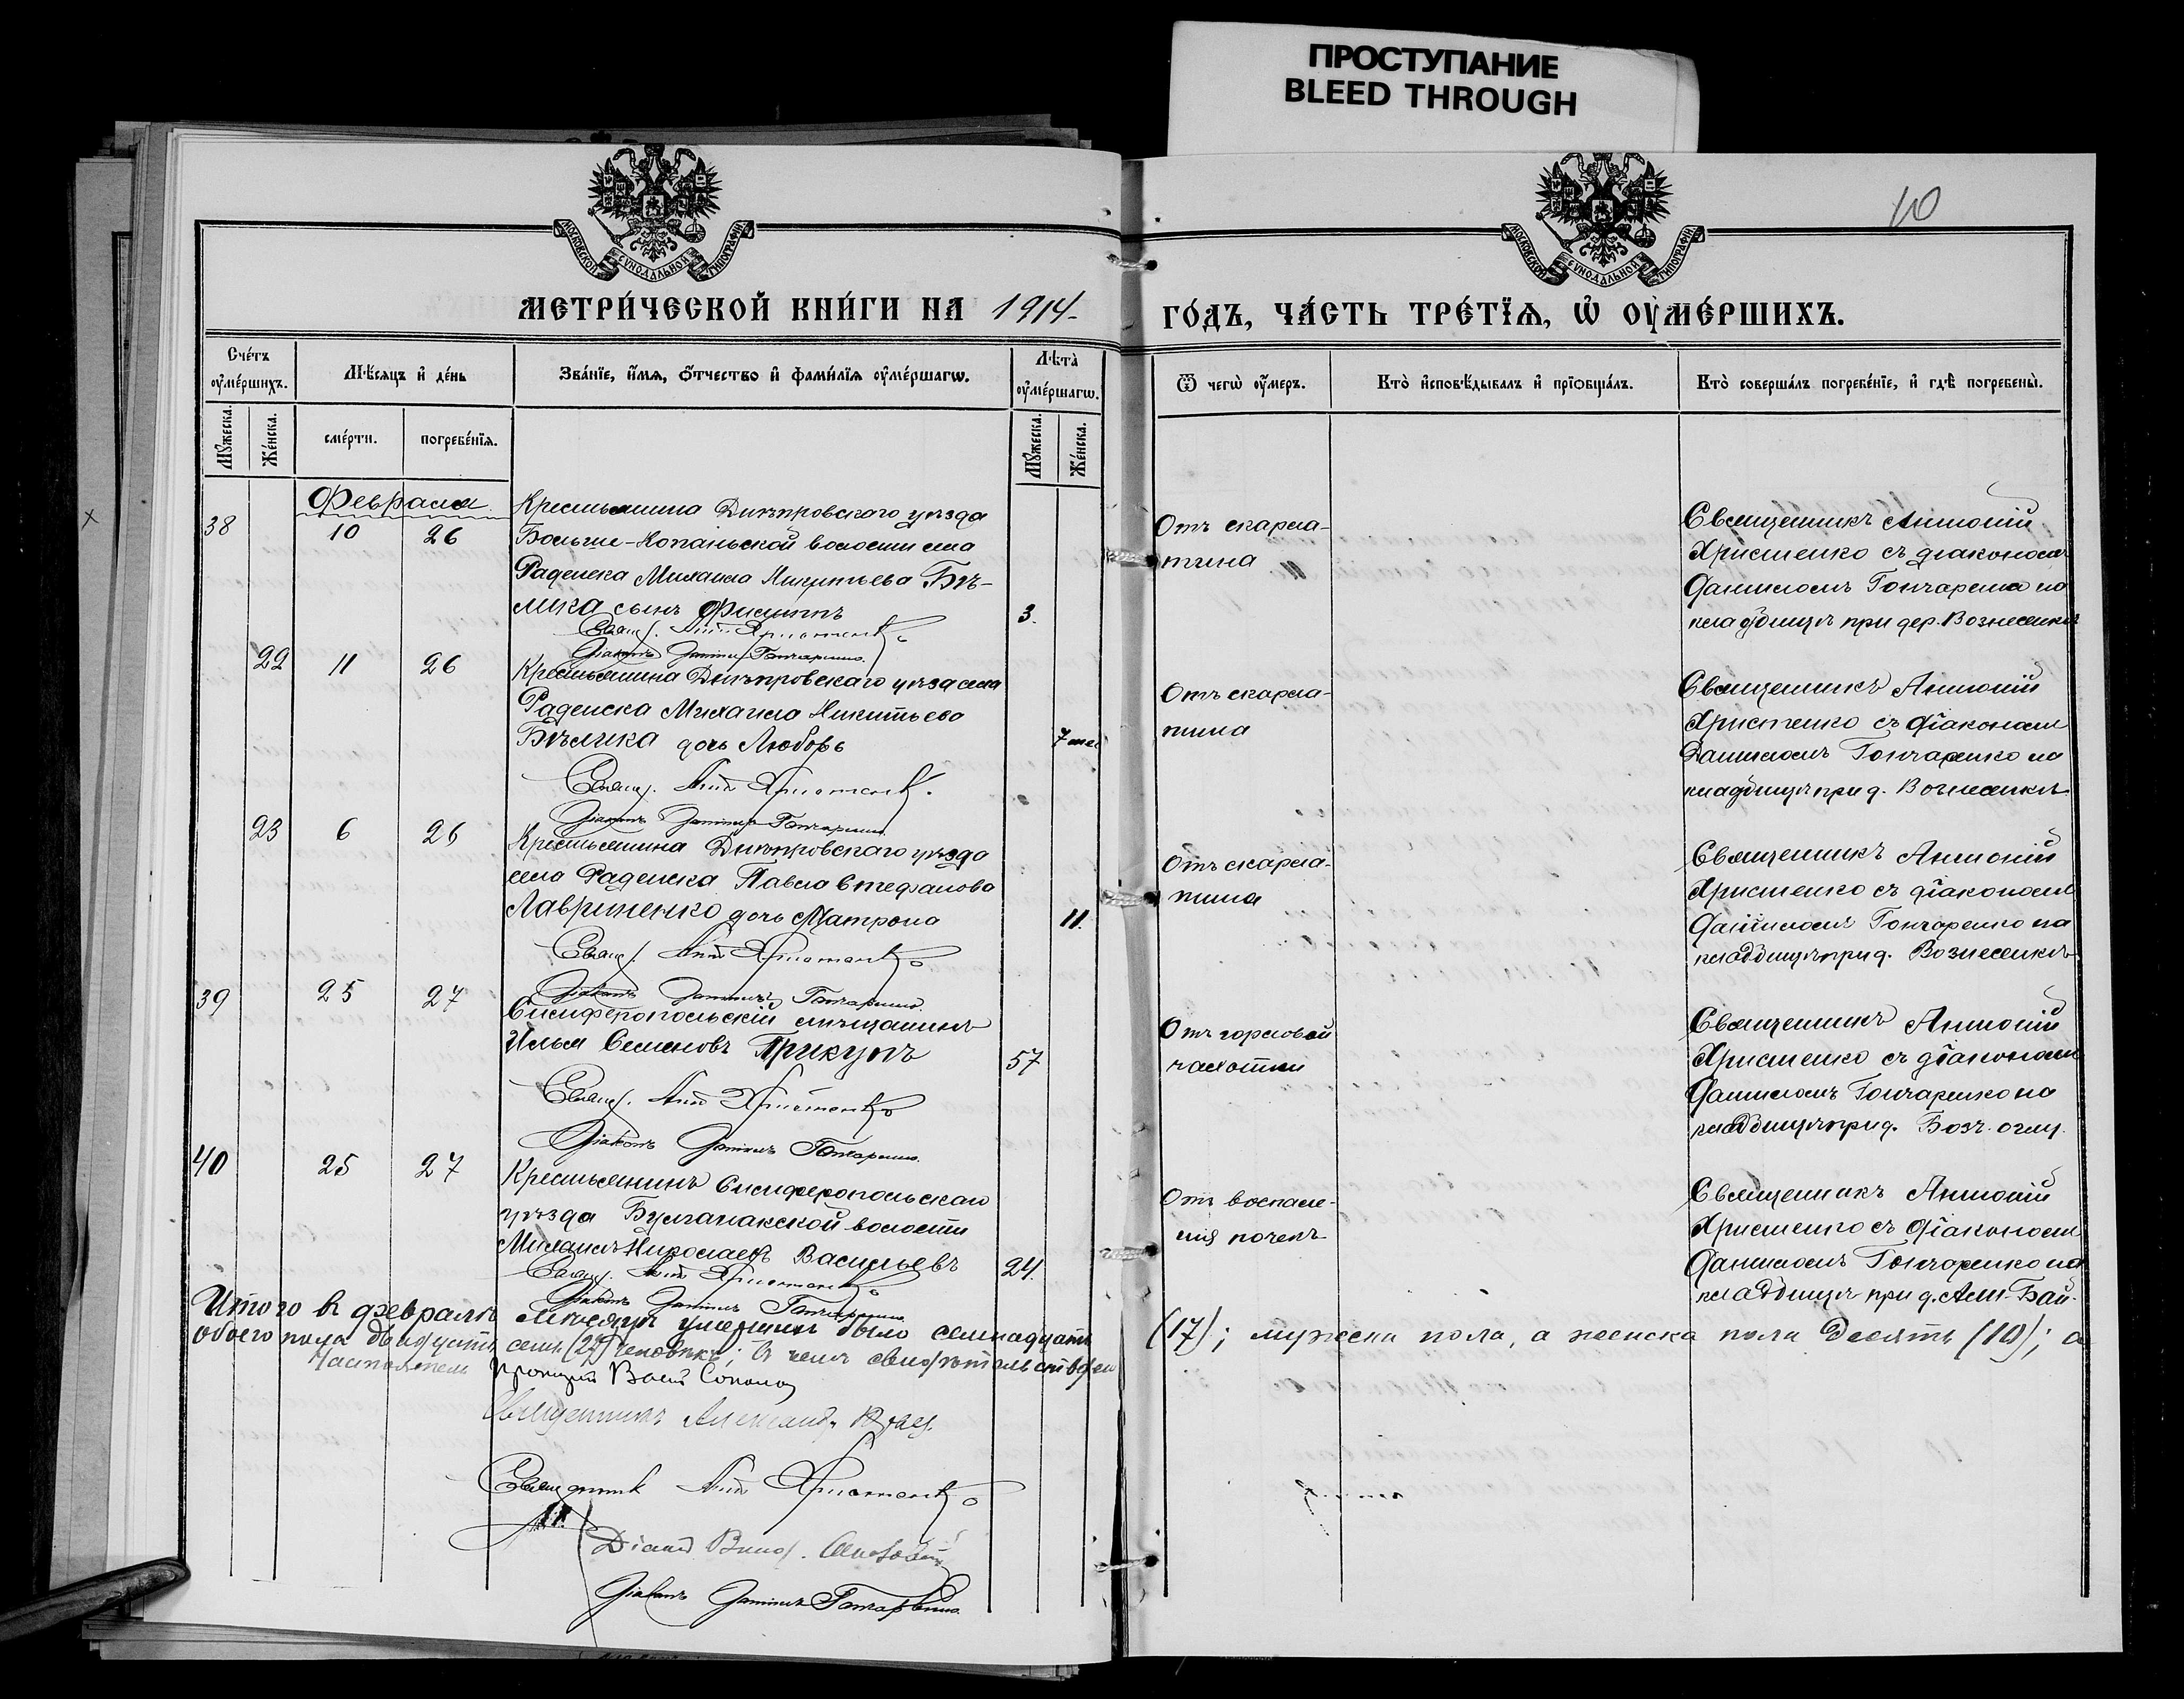 ПРОСТУПАНИЕ
BLEED THROUGH
10
МОСКОВСКОЙ СѴНОДАЛЬНОЙ ТИПОГРАФІИ
МОСКОВСКОЙ СѴНОДАЛЬНОЙ ТИПОГРАФІИ
МЕТРИ́ЧЕСКОЙ КНИ́ГИ НА 1914
ГО́ДЪ, ЧА́СТЬ ТРЕ́ТЇѦ, Ѡ҆ ОУ҆МЕ́РШИХЪ.
Сче́тъ оу҆ме́ршихъ.
Мѣ́сяцъ и҆ де́нь
Зва́нїе, и҆́мя, ѻ҆́тчество и҆ фами́лїя оу҆ме́ршагѡ.
Лѣ́та оу҆ме́ршагѡ.
Ѿ чегѡ̀ оу҆́меръ.
Кто̀ и҆сповѣ́дывалъ и҆ прїѡбща́лъ.
Кто̀ соверша́лъ погребе́нїе, и҆ гдѣ̀ погребены̀.
Мꙋ́жеска.
Же́нска.
сме́рти.
погребе́нїя.
Мꙋ́жеска.
Же́нска.
Февраля
38
10
26
Крестьянина Днѣпровскаго уѣзда
Больше-Копаньской волости села
Раденска Михаила Никитьева Бѣ-
лика сынъ Филиппъ
3.
Свящ. Ант. Христенко
Діаконъ Даниилъ Гончаренко.
Отъ скарла-
тина
Священникъ Антоній
Христенко съ діакономъ
Данииломъ Гончаренко на
кладбищѣ при дер. Вознесенкѣ
22
11
26
Крестьянина Днѣпровскаго уѣзда села
Раденска Михаила Никитьева
Бѣлика дочь Любовь
7 мѣс
Свящ. Ант. Христенко.
Діаконъ Даниилъ Гончаренко.
Отъ скарла-
тина
Священникъ Антоній
Христенко съ діакономъ
Данииломъ Гончаренко на
кладбищѣ при д. Вознесенкѣ
23
6
26
Крестьянина Днѣпровскаго уѣзда
села Раденска Павла Стефанова
Лавриненко дочь Матрона
11.
Свящ. Ант. Христенко
Діаконъ Даниилъ Гончаренко.
Отъ скарла-
тина
Священникъ Антоній
Христенко съ діакономъ
Данииломъ Гончаренко на
кладбищѣ при д. Вознесенкѣ
39
25
27
Симферопольскій мѣщанинъ
Илья Семеновъ Прикупъ
57
Свящ. Ант. Христенко
Діаконъ Даниилъ Гончаренко.
Отъ горловой
чахотки
Священникъ Антоній
Христенко съ діакономъ
Данииломъ Гончаренко на
кладбищѣ при д.
40
25
27
Крестьянинъ Симферопольскаго
уѣзда Булганакской волости
Михаилъ Николаевъ Васильевъ
24.
Свящ. Ант. Христенко
Діаконъ Даниилъ Гончаренко.
Отъ воспале-
нія почекъ
Священникъ Антоній
Христенко съ діакономъ
Данииломъ Гончаренко на
кладбищѣ при д. Аш-Бай.
Итого въ февралѣ мѣсяцѣ умершихъ было семнадцать (17); мужска пола, а женска пола Десять (10); а
обоего пола двадцать семь (27) человѣкъ; въ чемъ свидѣтельствуемъ
Настоятель
Священникъ Александр
Священникъ Ант. Христенко
Діаконъ Даниилъ Гончаренко.